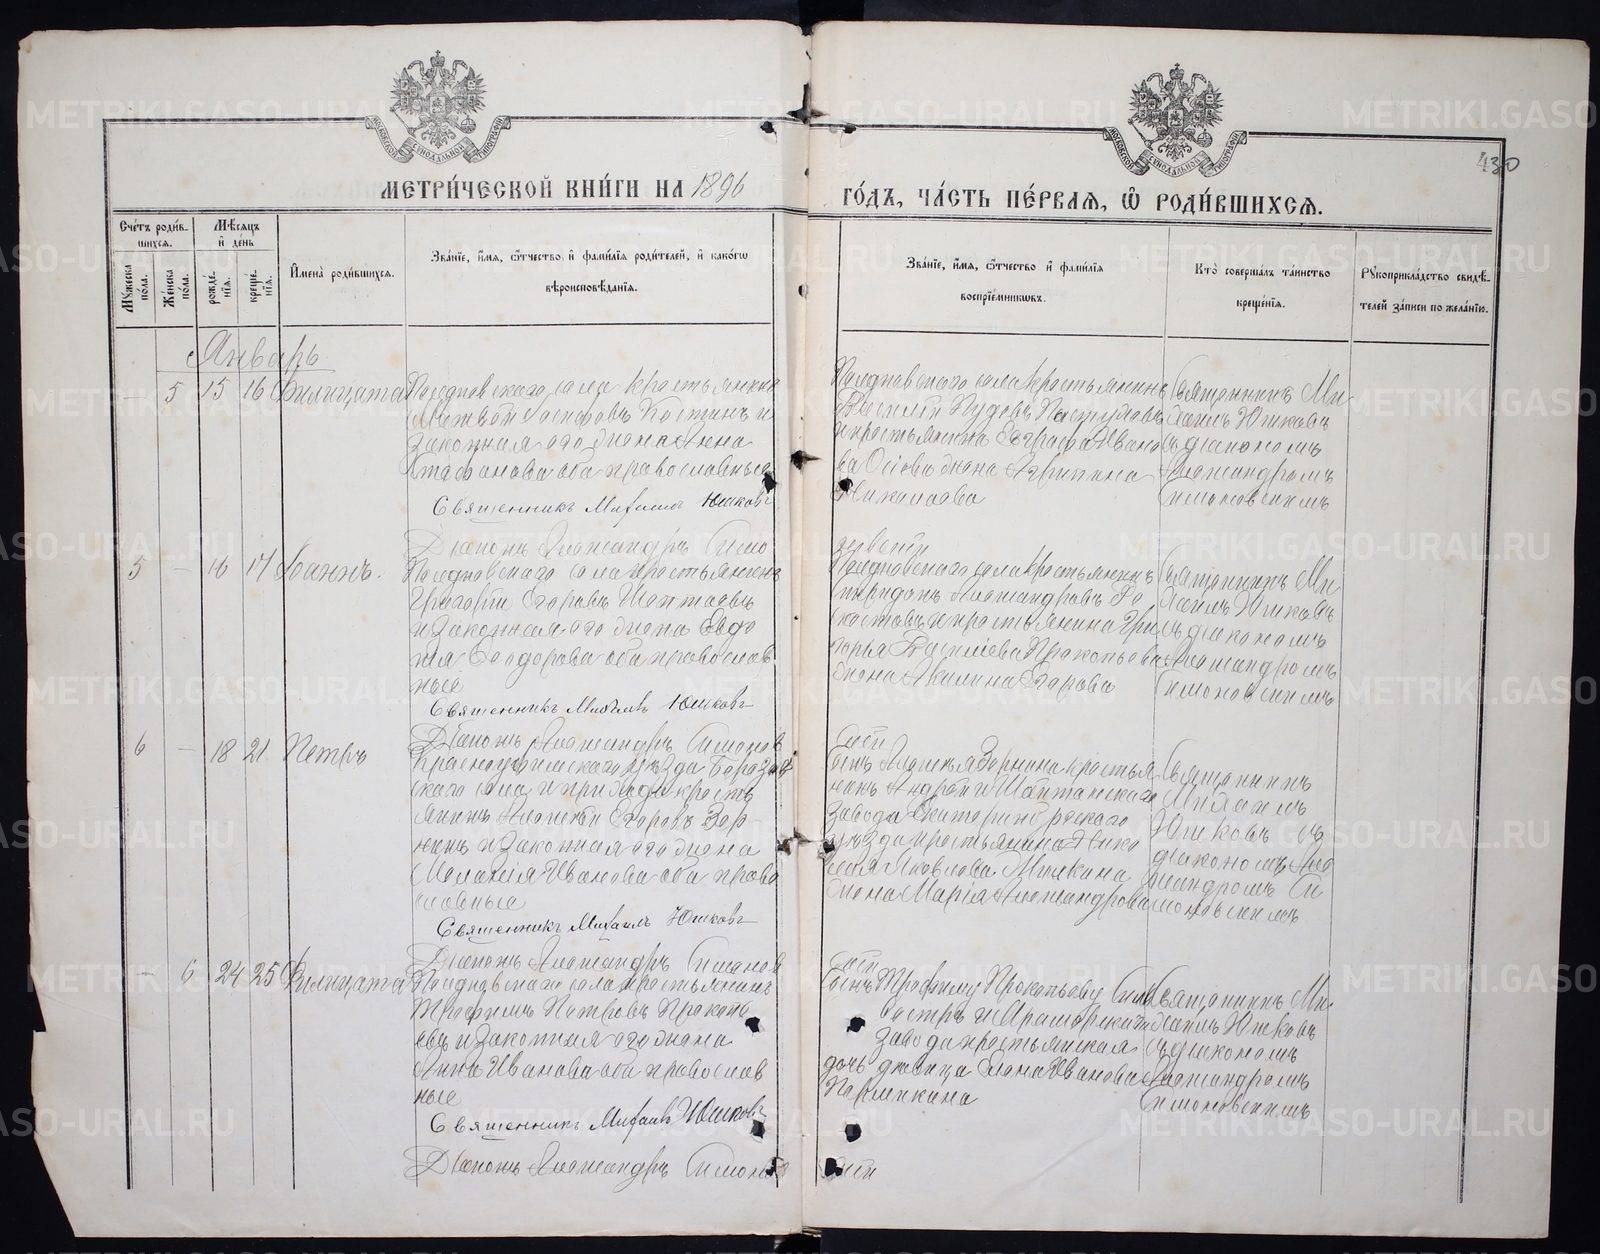 МОСКОВСКОЙ СѴНОДАЛЬНОЙ ТИПОГРАФІИ
МОСКОВСКОЙ СѴНОДАЛЬНОЙ ТИПОГРАФІИ
430
МЕТРИ́ЧЕСКОЙ КНИ́ГИ НА 1896
ГО́ДЪ, ЧА́СТЬ ПЕ́РВАѦ, Ѡ҆ РОДИ́ВШИХСѦ.
Сче́тъ роди́в-
шихсѧ.
Мꙋжеска по́ла.
Же́нска по́ла.
Мѣ́сѧцъ
и҆ де́нь
рожде́-
нїѧ.
креще́-
нїѧ.
И҆мена̀ роди́вшихсѧ.
Зва́нїе, и҆́мѧ, ѻ҆́тчество, и҆ фами́лїѧ роди́телей, и҆ како́гѡ
вѣроисповѣ́данїѧ.
Зва́нїе, и҆́мѧ, ѻ҆́тчество и҆ фами́лїѧ
воспрїе́мникѡвъ.
Кто̀ соверша́лъ та́инство
креще́нїѧ.
Рꙋкоприкла́дство свидѣ́-
телей за́писи по жела́нїю.
Январь
— 5 15 16 Филицата
Полдневскаго села крестьянинъ
Матвей Іосифовъ Костинъ и
законная его жена Анна
Стефанова оба православные
Священникъ Михаилъ Юшковъ
Діаконъ Александръ Симо
Полдневскаго села крестьянинъ
Василій Пудовъ Пастуховъ
и крестьянина Евграфа Ивано
ва Осіовъ жена Агрипина
Николаева
новскій
Священникъ Ми-
хаилъ Юшковъ
съ діакономъ
Александромъ
Симоновскимъ
5 — 16 17 Іоаннъ.
Полдневскаго села крестьянинъ
Григорій Егоровъ
и законная его жена Евдо
кія Феодорова оба православ
ные
Священникъ Михаилъ Юшковъ
Діаконъ Александръ Симонов
Полдневскаго села крестьянинъ
Спиридонъ Александровъ
и крестьянина Гри
горья Васильева Прокопьева
жена Акилина Егорова
скій
Священникъ Ми-
хаилъ Юшковъ
съ діакономъ
Александромъ
Симоновскимъ
6 — 18 21 Петръ
Красноуфимскаго уѣзда
скаго села и прихода кресть
янинъ Алексѣй Егоровъ Зор
нинъ и законная его жена
Меланія Иванова оба право
славные
Священникъ Михаилъ Юшковъ
Діаконъ Александръ Симонов
Сынъ Алексѣя Зорнина крестья
нинъ Андрей и Шайтанскаго
завода Екатеринбургскаго
уѣзда крестьянина Нико
лая Яковлева
жена Марія Александрова
скій
Священникъ
Михаилъ
Юшковъ съ
діакономъ Але
ксандромъ Си
моновскимъ
— 6 24 25 Филицата
Полдневскаго села крестьянинъ
Трофимъ Петровъ Прокопь
евъ и законная его жена
Анна Иванова оба православ
ные
Священникъ Михаилъ Юшковъ
Діаконъ Александръ Симонов
Сынъ Трофиму Прокопьеву Силь
вестръ и Мраморскаго
завода крестьянская
дочь дѣвица Елена Иванова
скій
Священникъ Ми-
хаилъ Юшковъ
съ діакономъ
Александромъ
Симоновскимъ